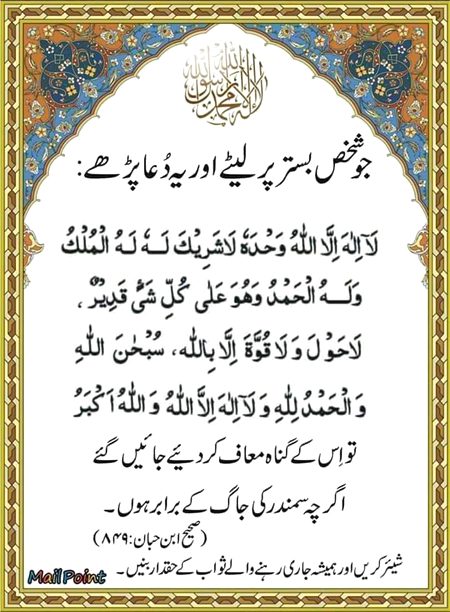 لا إله إلا الله محمد رسول الله
جو شخص بستر پر لیٹے اور یہ دُعا پڑھے:
لَآ اِلٰهَ اِلَّا اللّٰهُ وَحْدَهٗ لَاشَرِيْكَ لَهٗ لَهُ الْمُلْكُ
وَلَهُ الْحَمْدُ وَهُوَ عَلٰى كُلِّ شَىْءٍ قَدِيْرٌ،
لَاحَوْلَ وَلَا قُوَّةَ اِلَّا بِاللّٰهِ، سُبْحٰنَ اللّٰهِ
وَالْحَمْدُ لِلّٰهِ وَلَآ اِلٰهَ اِلَّا اللّٰهُ وَاللّٰهُ اَكْبَرُ
تو اِس کے گناہ معاف کر دیئے جائیں گے
اگرچہ سمندر کی جاگ کے برابر ہوں۔
(صحیح ابن حبان: ۸۴۹)
شیئر کریں اور ہمیشہ جاری رہنے والے ثواب کے حقدار بنیں۔
MailPoint